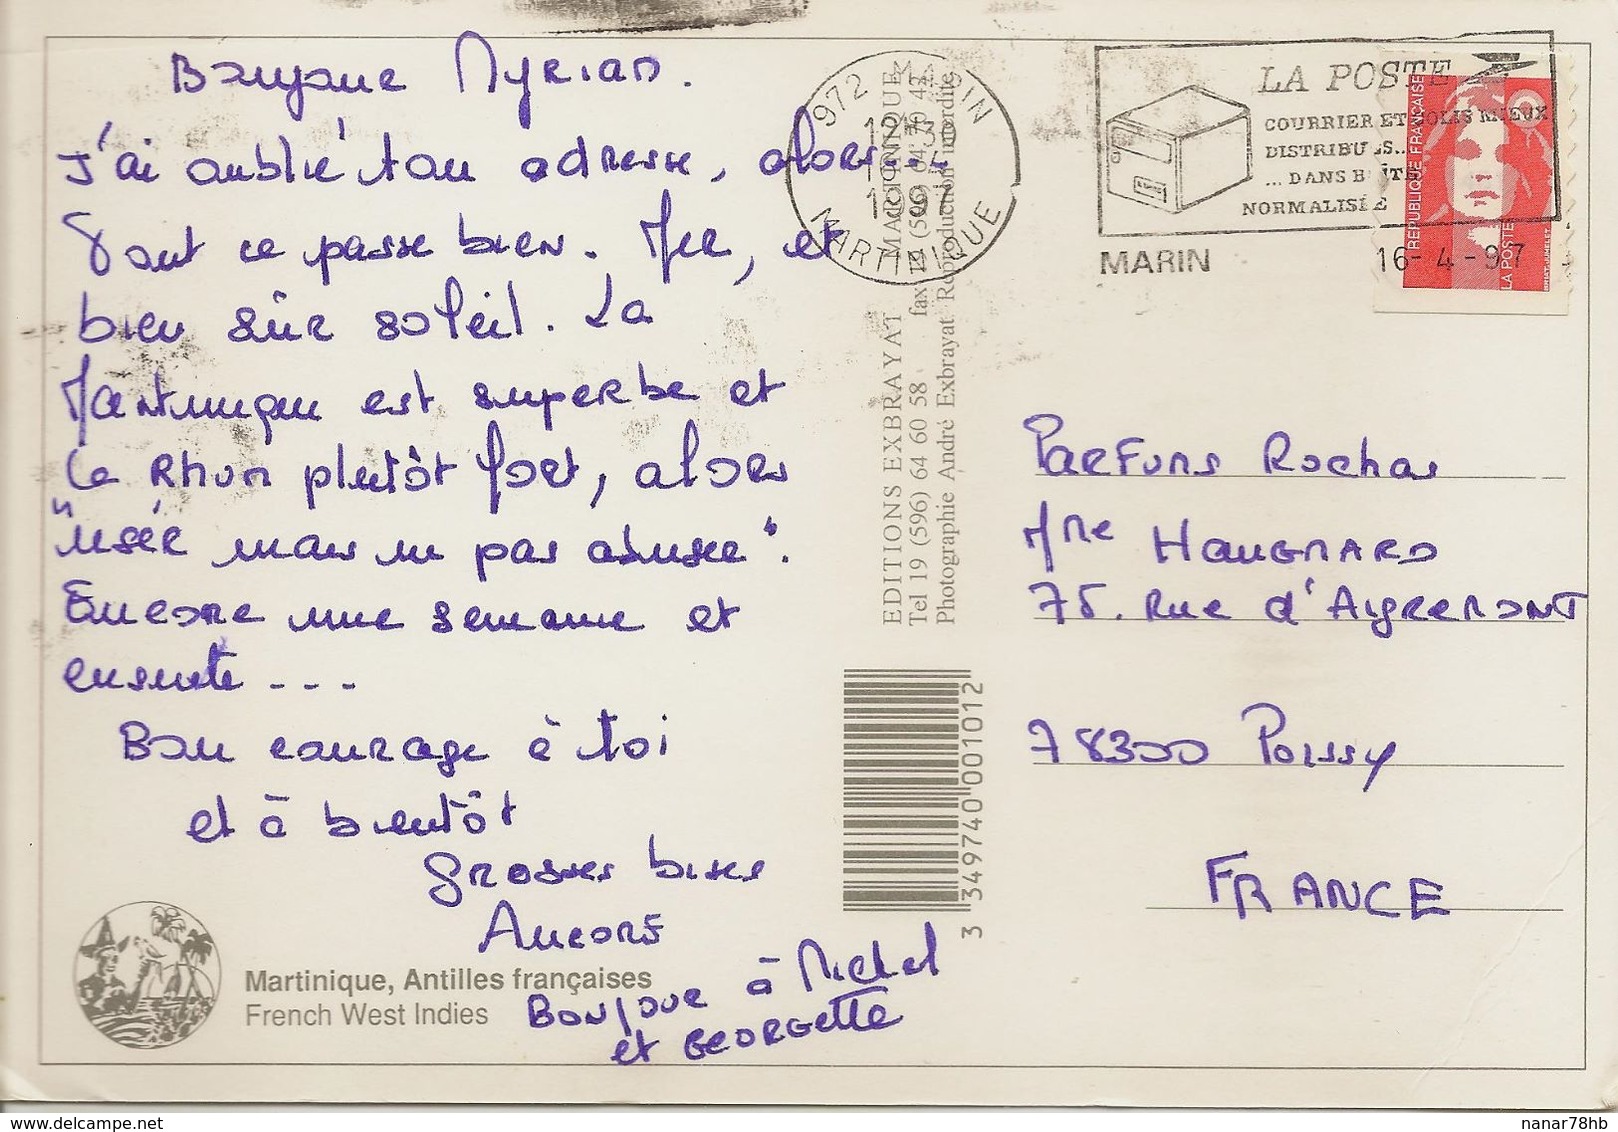 Bonjour Myriam.
J'ai oublié ton adresse, alors
Tout ce passe bien. Mer, et
bien sûr soleil. La
Martinique est superbe et
le Rhum plutôt fort, alors
"usée mais ne pas abusée".
Encore une semaine et
ensuite ---
Bon courage à toi
et à bientôt
Grosses bises
Aurore
Bonjour à Michel
et Georgette
Martinique, Antilles françaises
French West Indies
972 MARIN
1997
MARTINIQUE
EDITIONS EXBRAYAT MARTINIQUE
Tel 19 (596) 64 60 58 fax 19 (596)
Photographie André Exbrayat Reproduction interdite
3 349740 001012
LA POSTE
COURRIER ET COLIS MIEUX
DISTRIBUES...
... DANS BOITE
NORMALISÉE
MARIN
16-4-97
REPUBLIQUE FRANÇAISE
LA POSTE
Parfums Rochas
Mme Haugnard
75. Rue d'Aigremont
78300 Poissy
FRANCE
nanar78hb